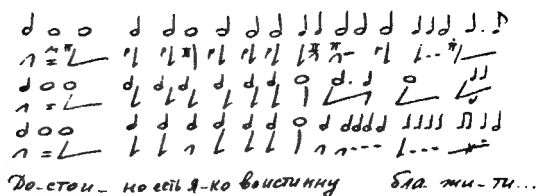 До-стои- но есть я-ко воистинну бла. жи-ти...